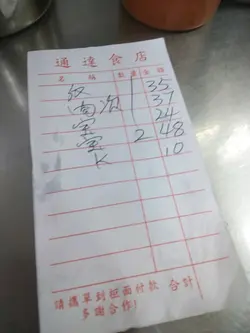 通達食店
名稱 數量 金額
35
37
24
2 48
K 10
請攜單到柜面付款 合計
多謝合作!